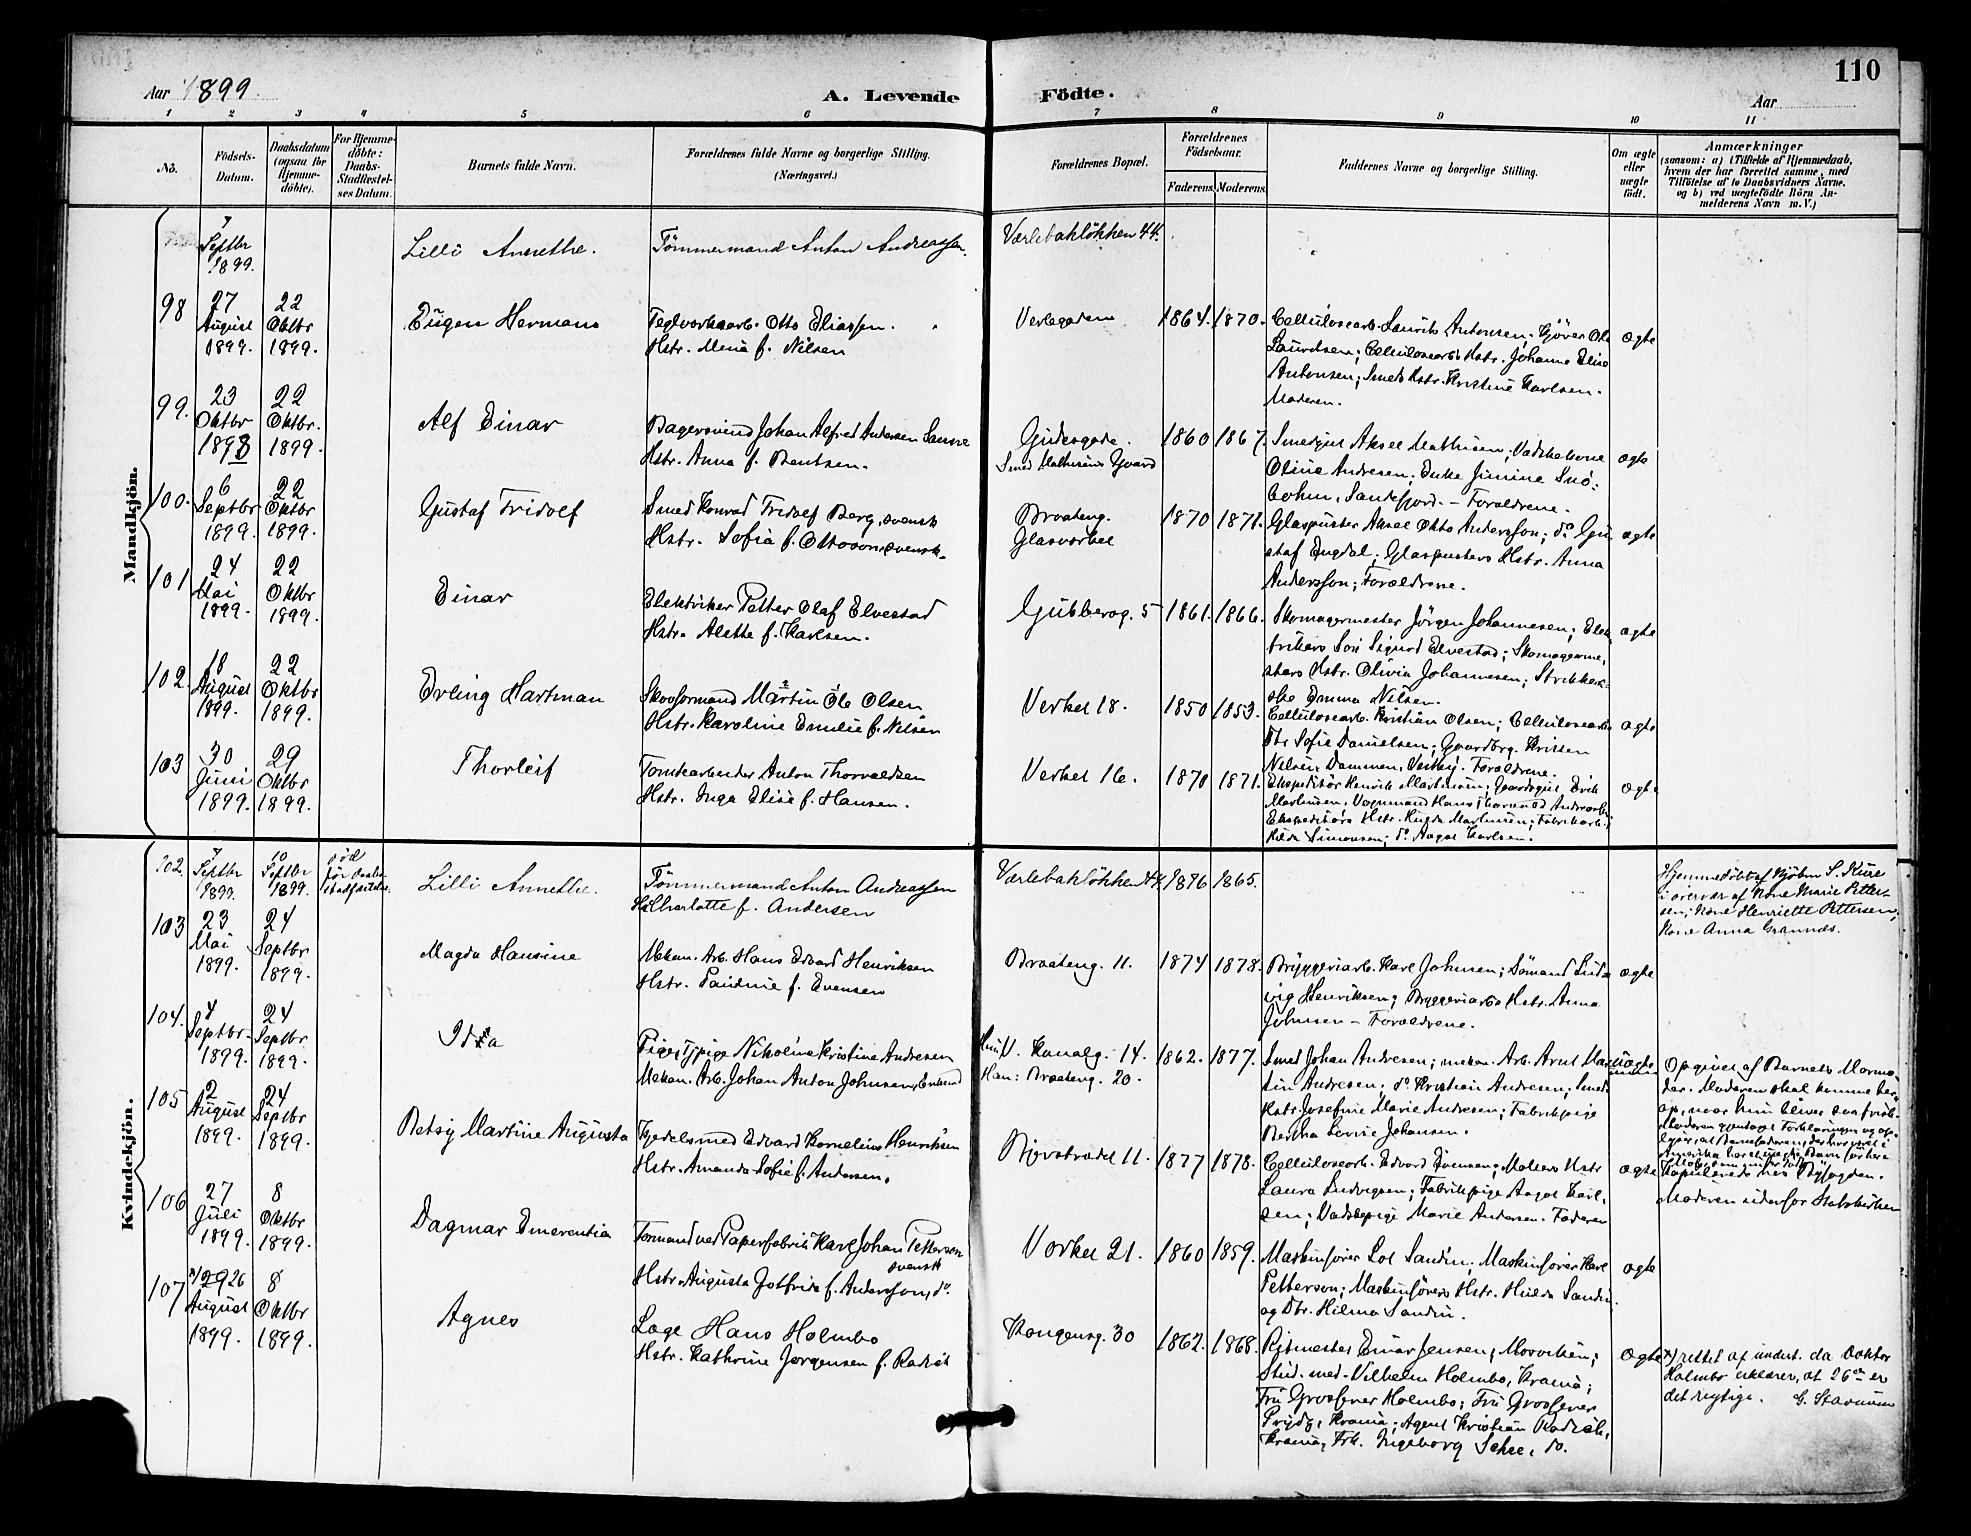 110
Aar 1899
A. Levende
Födte.
Aar
1 2 3 4 5 6 7 8 9 10 11
No.
Födsels-
Datum.
Daabsdatum
(ogsaa for
Hjemme-
döbte).
For Hjemme-
döbte:
Daabs-
Stadfæstel-
ses Datum.
Barnets fulde Navn.
Forældrenes fulde Navne og borgerlige Stilling.
(Næringsvei.)
Forældrenes Bopæl.
Forældrenes
Födselsaar.
Faderens.
Moderens.
Faddernes Navne og borgerlige Stilling.
Om ægte
eller
uægte
födt.
Anmærkninger
(saasom: a) i Tilfælde af Hjemmedaab,
hvem der har forrettet samme, med
Tilföielse af to Daabsvidners Navne.
og b) ved uægtefödte Börn An-
melderens Navn m. V.)
Mandkjön.
7
Septbr
1899.
Lilli Annethe.
Tømmermand Anton Andreassen.
Værlebakløkken 44.
98
27
August
1899.
22
Oktbr
1899.
Eugen Hermann
Teglverksarb. Otto Eliassen.
Hstr. Mina f. Nilsen
Verlegaden
1864.
1870.
Cellulosearb. Laurits Antonsen; Gjører Ole
Lauridsen; Cellulosearbs Hstr. Johanne Elise
Antonsen; Smeds Hstr. Kristine Karlsen.
Moderen.
ægte
99.
23
Oktbr
1898
22
Oktbr.
1899.
Alf Einar
Bagersvend Johan Alfred Andersen Sanne
Hstr. Anna f. Bentsen.
Gudesgade.
Smed Mathisens Gaard
1860
1867.
Smedgut Aksel Mathisen; Vadskekone
Oline Andresen; Enke Jimine Snö-
bohm, Sandefjord. - Forældrene.
ægte
100.
6
Septbr
1899.
22
Oktbr
1899.
Gustaf Fridolf
Smed Konrad Fridolf Berg, svensk
Hstr. Sofia f. Ottoson, svensk.
Braateng.
Glasverket
1870
1871.
Glaspuster Aksel Otto Andersson; do Gu
staf Engdal; Glaspusters Hstr. Anna
Andersson; Forældrene.
ægte
101
24
Mai
1899.
22
Oktbr
1899.
Einar
Elektriker Petter Olaf Elvestad
Hstr. Alette f. Karlsen.
Gubberog. 5
1861.
1866.
Skomagermester Jørgen Johannesen; Elek
trikers Søn Sigurd Elvestad; Skomagerme,
sters Hstr. Olivia Johannesen; Strikker-
ske Emma Nilsen.
ægte
102.
18
August
1899.
22
Oktbr
1899.
Erling Hartman
Skoformand Martin Ole Olsen
Hstr. Karoline Emilie f. Nilsen
Verket 18.
1850
1853.
Cellulosearb. Kristian Olsen; Cellulosearbs
Dtr. Sofie Danielsen; Gaardbrg. Kristen
Nilsen, Dammen, Vestby. Forældrene.
ægte
103
30
Juni
1899.
29
Oktbr
1899.
Thorleif
Tomtearbeider Anton Thorvaldsen
Hstr. Inga Elise f. Hansen.
Verket 16.
1870
1871.
Ekspeditør Henrik Martinsen; Gaardsgut Erik
Martinsen; Vognmand Hans Thorvald Andersen;
Ekspeditørs Hstr. Hulda Martinsen; Fabrikarb.
Hilda Simonsen; do Aagot Karlsen.
ægte
Kvindekjön.
102
7
Septbr
1899.
10
Septbr
1899.
död
för Daabs
stadfæstelse.
Lilli Annethe.
Tømmermand Anton Andreassen
H. Charlotte f. Andersen
Værlebakløkken 44
1876
1865.
Hjemmedöbt af Kjøbm S. Kure
i overvær af Kone Marie Petter-
sen; Kone Henriette Pettersen,
Kone Anna Grannes.
103
23
Mai
1899.
24
Septbr
1899.
Magda Hansine
Mekan. Arb. Hans Edvard Henriksen
Hstr. Pauline f. Evensen
Braateng. 11.
1874
1878.
Bryggeriarb. Karl Johnsen; Sømand Lud
vig Henriksen; Bryggeriarbs Hstr. Anna
Johnsen - Forældrene.
ægte
104.
4
Septbr.
1899.
24
Septbr
1899.
Ida
Pige, Tjpige Nikoline Kristine Andresen
Mekan. Arb. Johan Anton Johnsen, Enkemd
Hun: V. Kanalg. 14.
Han: Braateng. 20.
1862.
1877.
Smed Johan Andresen; mekan. Arb. Arnt Mar
tin Andresen; do Kristian Andresen; Smeds
Hstr. Josefine Marie Andresen; Fabrikpige
Bertha Lovise Johansen.
uægte
Opgivet af Barnets Mormo-
der. Moderen skal komme her-
op, naar hun bliver saa frisk.
105
2
August
1899.
24
Septbr
1899.
Betsy Martine Augusta
Kjedelsmed Edvard Kornelius Henriksen
Hstr. Amanda Sofie f. Andersen.
Bjerstrædet 11.
1877
1878.
Cellulosearb. Edvard Evensen; Malers Hstr
Laura Ludvigsen; Fabrikpige Aagot Karl,
sen; Vadskepige Marie Andersen. Faderen
ægte
Kopulerede hos Byfogden.
Moderen udenfor Statskirken
106
27
Juli
1899.
8
Oktbr
1899.
Dagmar Emerentia
Formand ved Papirfabrik Karl Johan Petterson
svensk
Hstr. Augusta Gotfrida f. Andersson, do
Verket 21.
1860
1859.
Maskinfører Sandin; Maskinfører Karl
Petterson; Maskinførers Hstr. Hulda Sandin
og Dtr. Hilma Sandin.
ægte
107
x) 29 26
August
1899.
8
Oktbr
1899.
Agnes
Læge Hans Holmbo
Hstr. Kathrine Jørgensen f. Radich
Kongensg. 30
1862.
1868.
Ritmester Einar Jensen, Mosviken;
Stud. med. Vilhelm Holmbo, Krania;
Fru Grosserer Holmbo; Fru Grosserer
Prydz, Krania; Agent Kristian Radich,
Krania, Frk. Ingeborg Schee, do.
ægte
x) rettet af undert. da Doktor
Holmbo erklærer, at 26de er
det rigtige. G. Stavnum